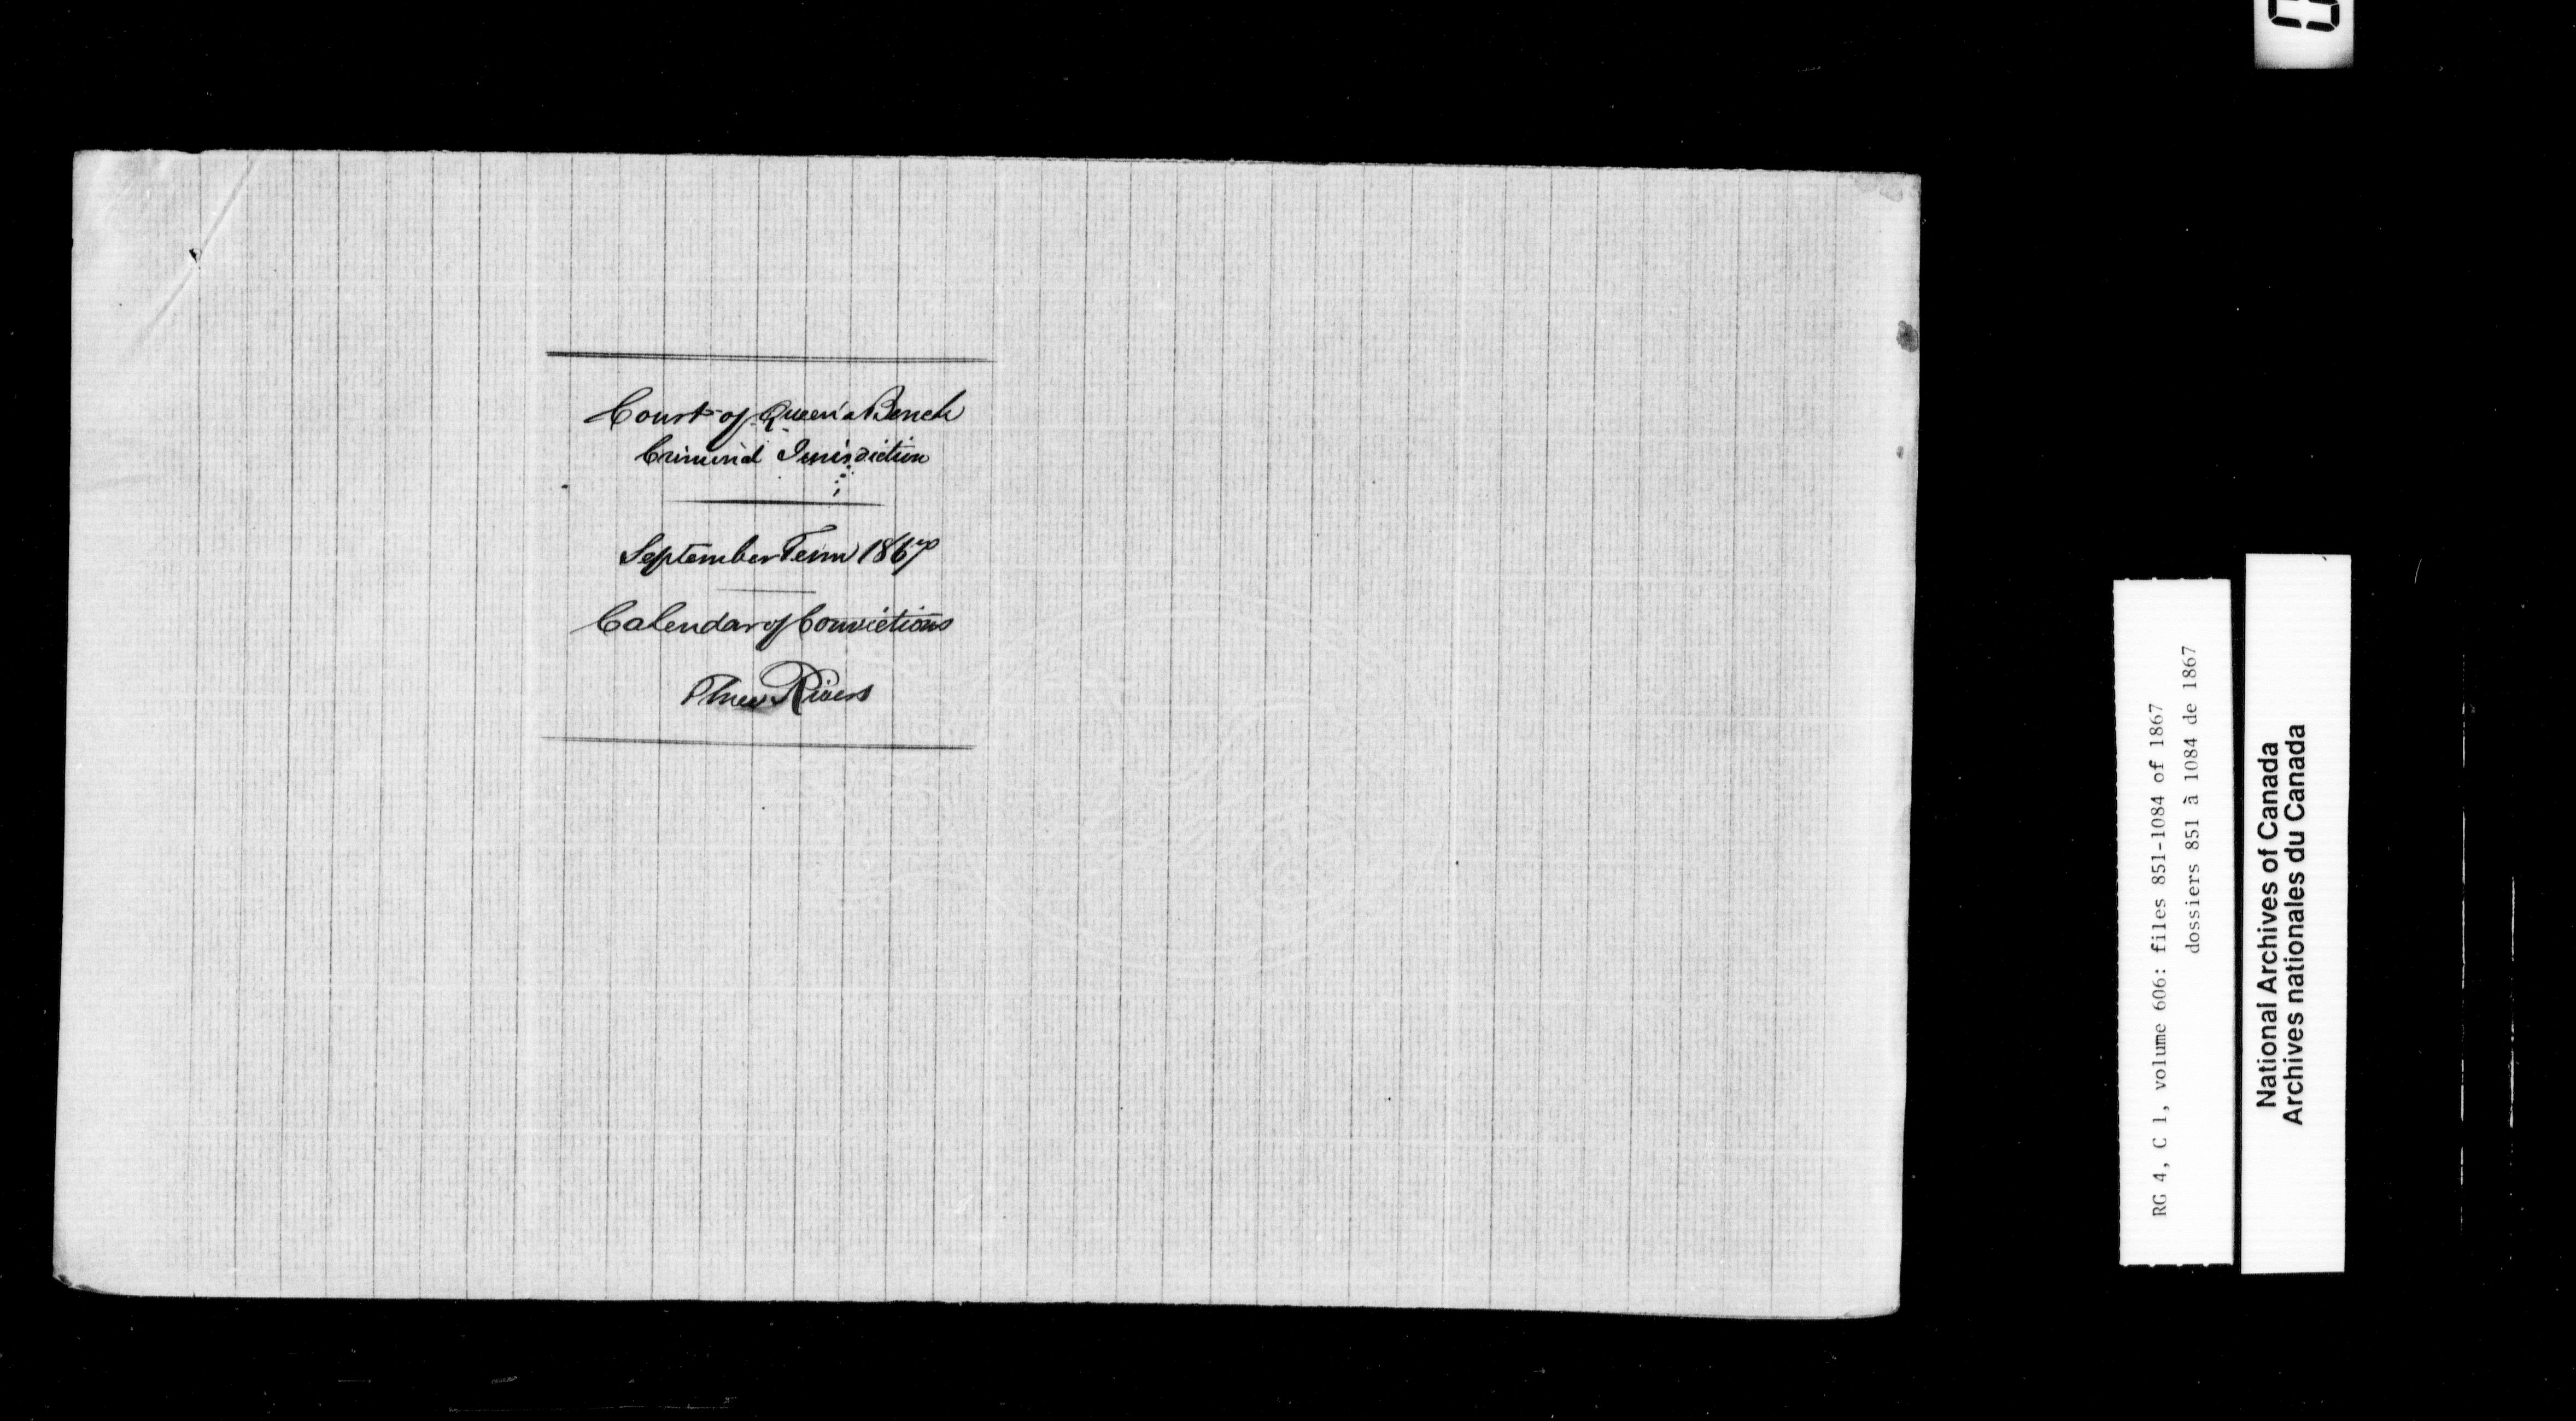 Court of Queen's Bench
Criminal Jurisdiction
September Term 1867
Calendar of Convictions
Three Rivers
RG 4, C 1, volume 606: files 851-1084 of 1867
dossiers 851 à 1084 de 1867
National Archives of Canada
Archives nationales du Canada